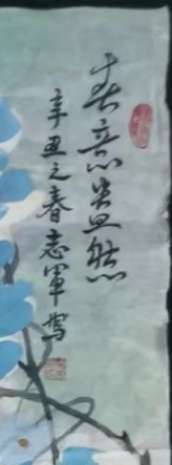 春意盎然
辛丑之春志軍写